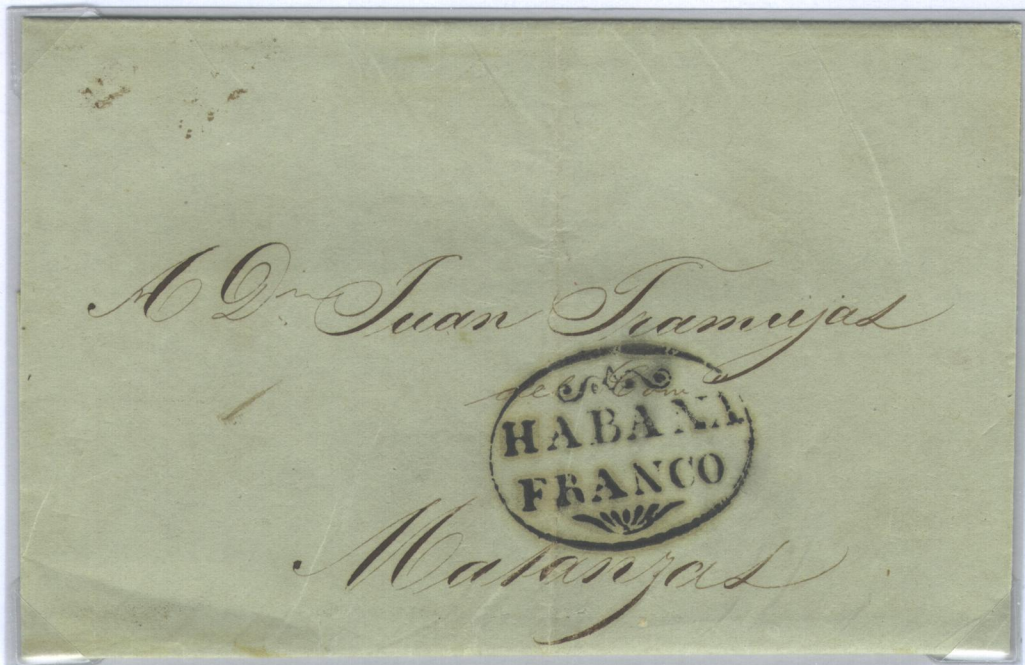 A Dn Juan Tramujas
del Com
HABANA
FRANCO
Matanzas